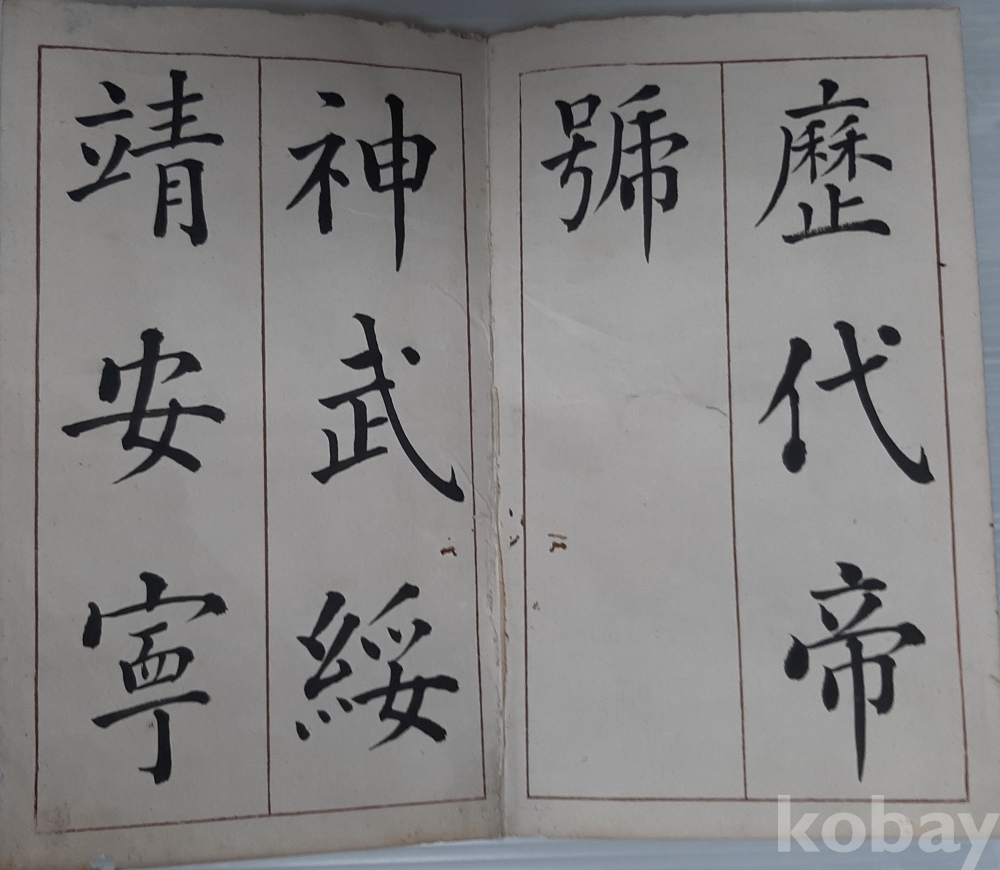 歷代帝
號
神武綏
靖安寧
kobay